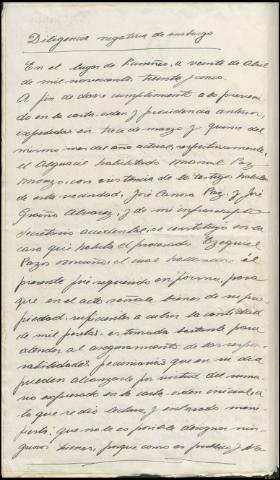 Diligencia negativa de embargo
En el lugar de Piniños, a veinte de Abril
de mil novecientos treinta y cinco.
A fin de darse cumplimiento a lo preveni-
do en la carta-orden y providencia anterior,
expedidas en trece de marzo y quince del
mismo mes del año actual, respectivamente,
el Alguacil habilitado Manuel Paz
con asistencia de los testigos hábiles
de esta vecindad, José Canosa Paz y José
Graiño Alvarez, y de mi infrascripto
Secretario accidental, se constituyó en la
casa que habita el procesado Ezequiel
Pazos el cual hallándose
presente fue requerido en forma, para
que en el acto señale bienes de su pro-
piedad, suficientes a cubrir la cantidad
de mil pesetas, estimada bastante para
atender al aseguramiento de las respon-
sabilidades pecuniarias que en su día
pueden alcanzarle por virtud del suma-
rio expresado en la carta-orden inicial, a
la que se dio lectura, y enterado mani-
fiesta: que no le es posible designar nin-
gunos bienes, porque como es público y